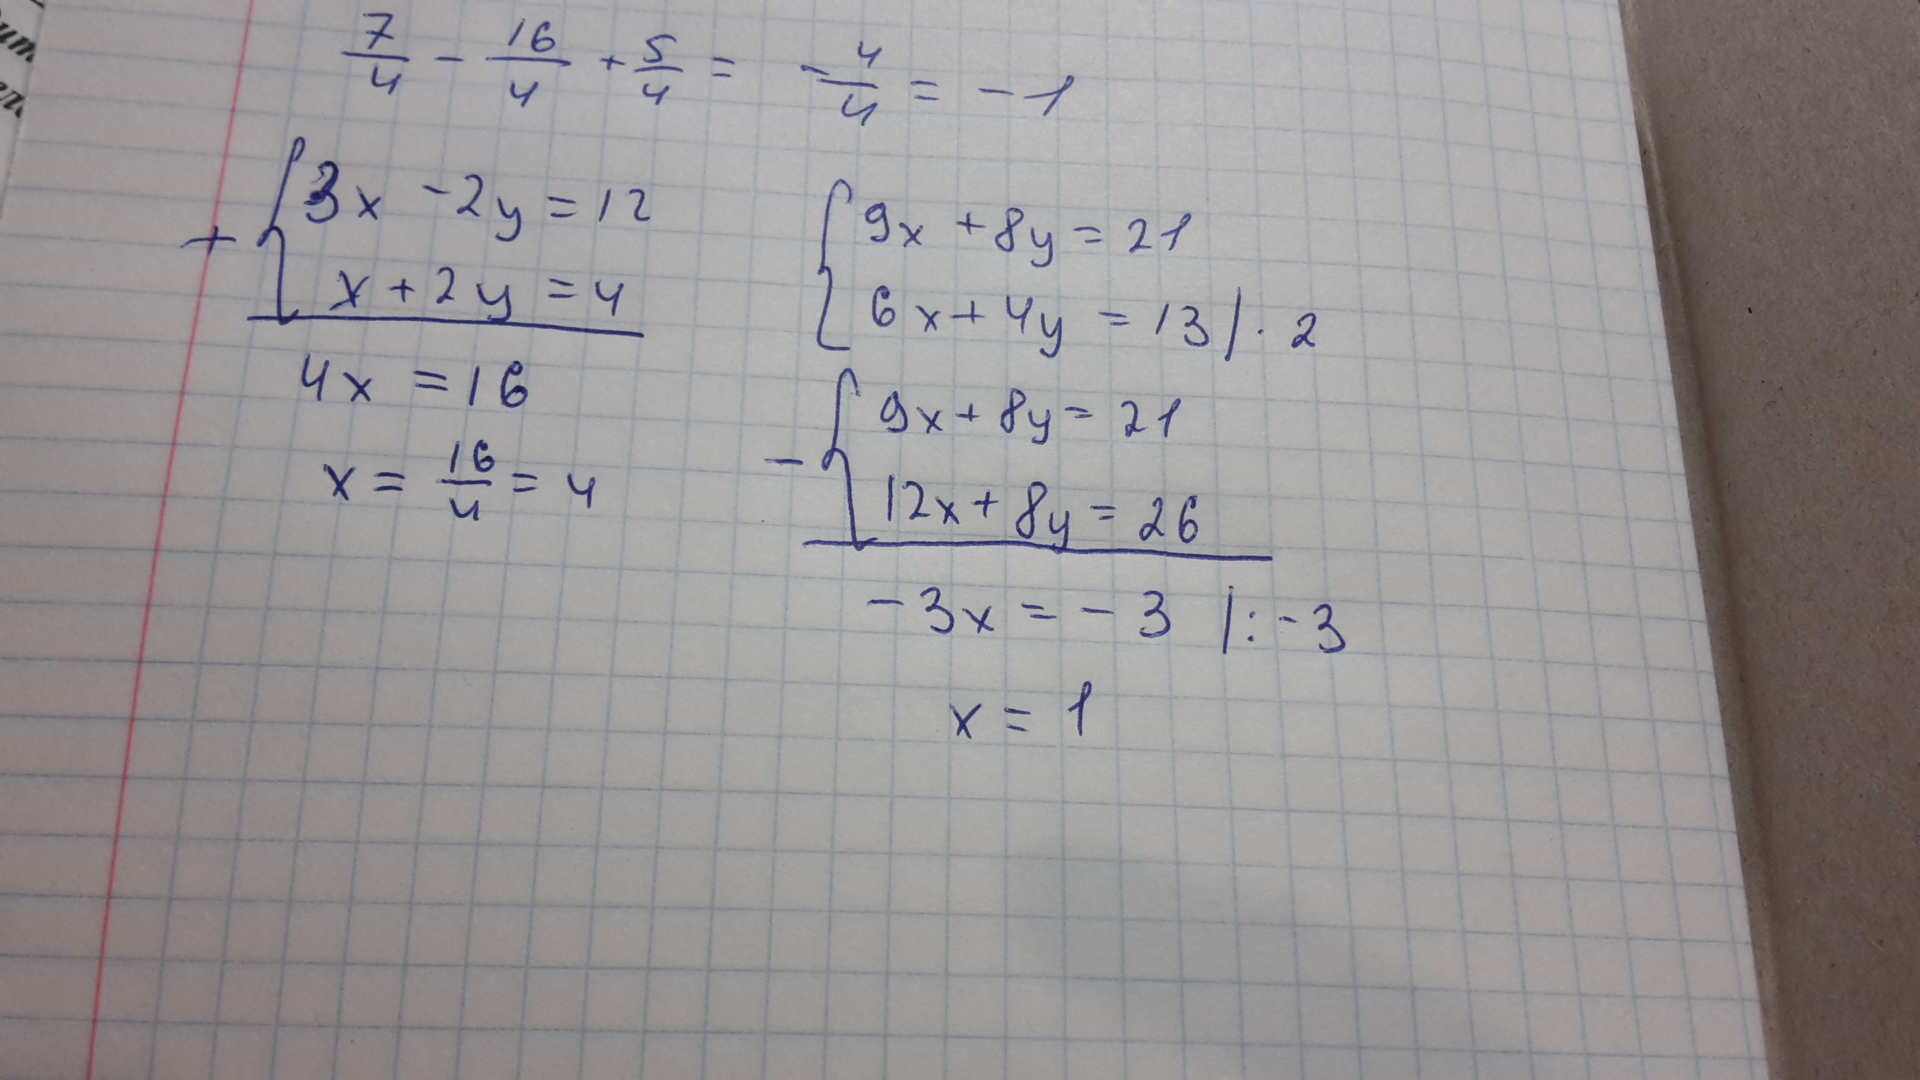 7/4 - 16/4 + 5/4 = -4/4 = -1
+ { 3x - 2y = 12
x + 2y = 4
4x = 16
x = 16/4 = 4
{ 9x + 8y = 21
6x + 4y = 13 | · 2
- { 9x + 8y = 21
12x + 8y = 26
-3x = -3 | : -3
x = 1